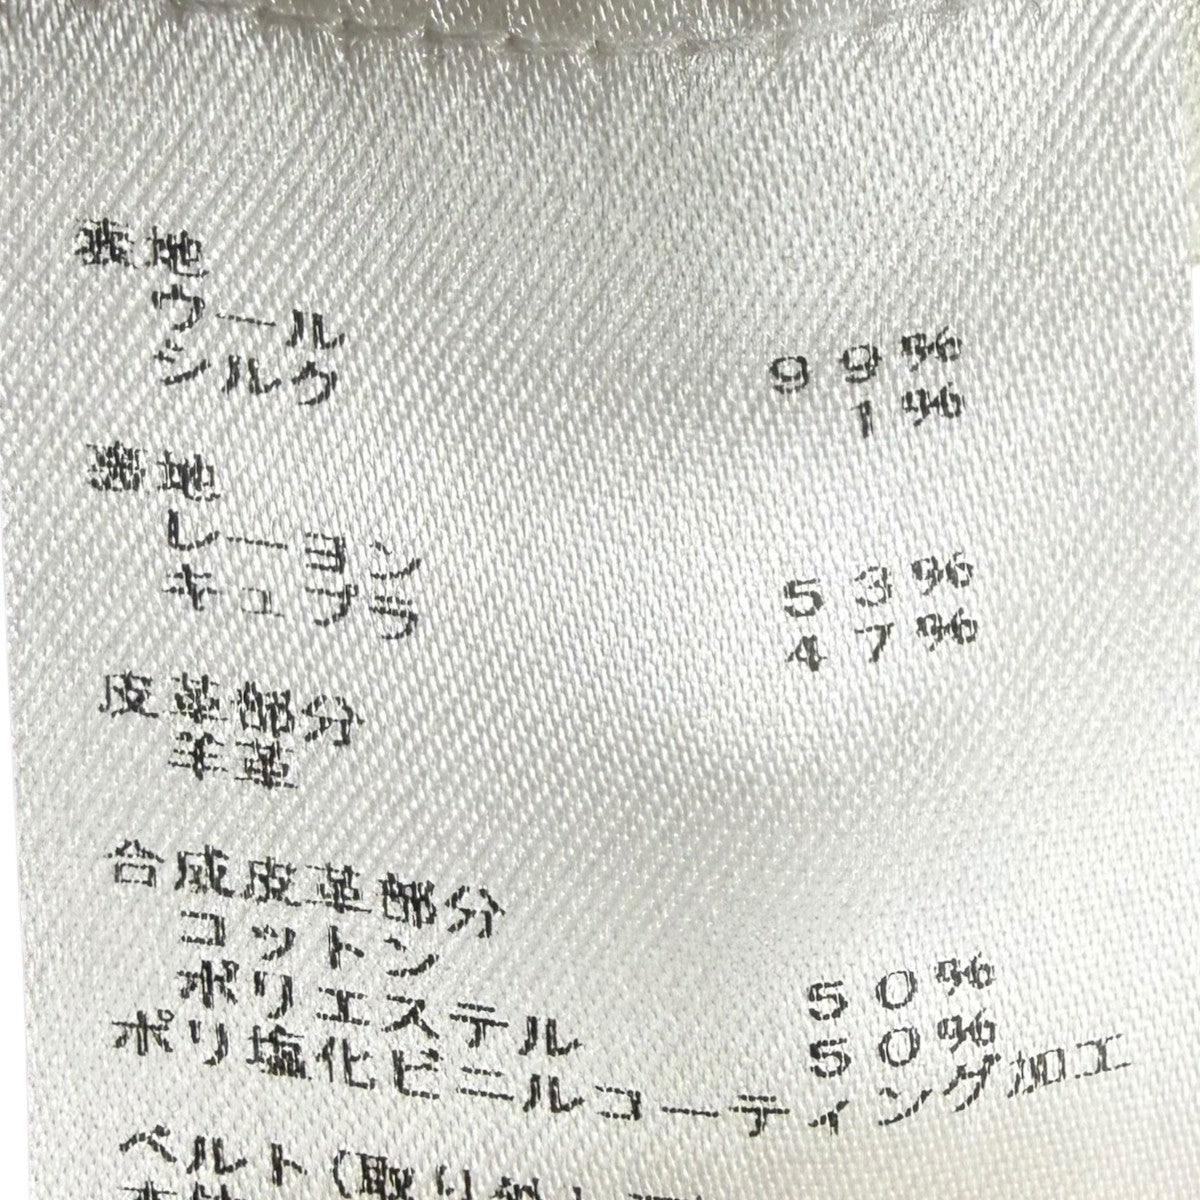 表地
ウール 99%
シルク 1%
裏地
レーヨン 53%
キュプラ 47%
皮革部分
羊革
合成皮革部分
コットン 50%
ポリエステル 50%
ポリ塩化ビニルコーティング加工
ベルト(取り